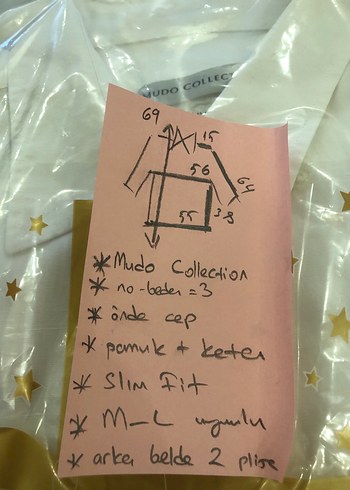 MUDO COLLECT
69
15
56
64
38
55
* Mudo Collection
* no-beden = 3
* önde cep
* pamuk + keten
* Slim Fit
* M-L uyumlu
* arka belde 2 plise